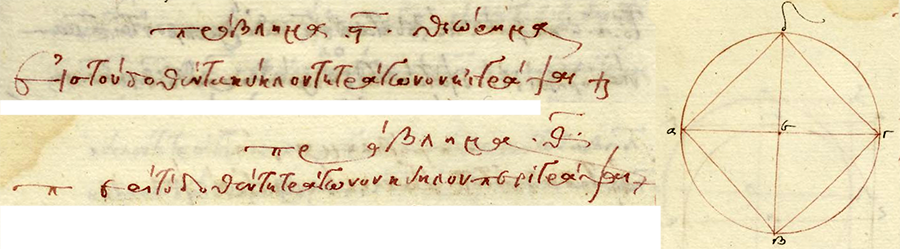 πρόβλημα .ϛ. θεώρημα
Εἰς τὸν δοθέντα κύκλον τετράγωνον ἐγγράψαι
πρόβλημα .θ.
περὶ τὸ δοθὲν τετράγωνον κύκλον περιγράψαι
δ
α ε γ
β